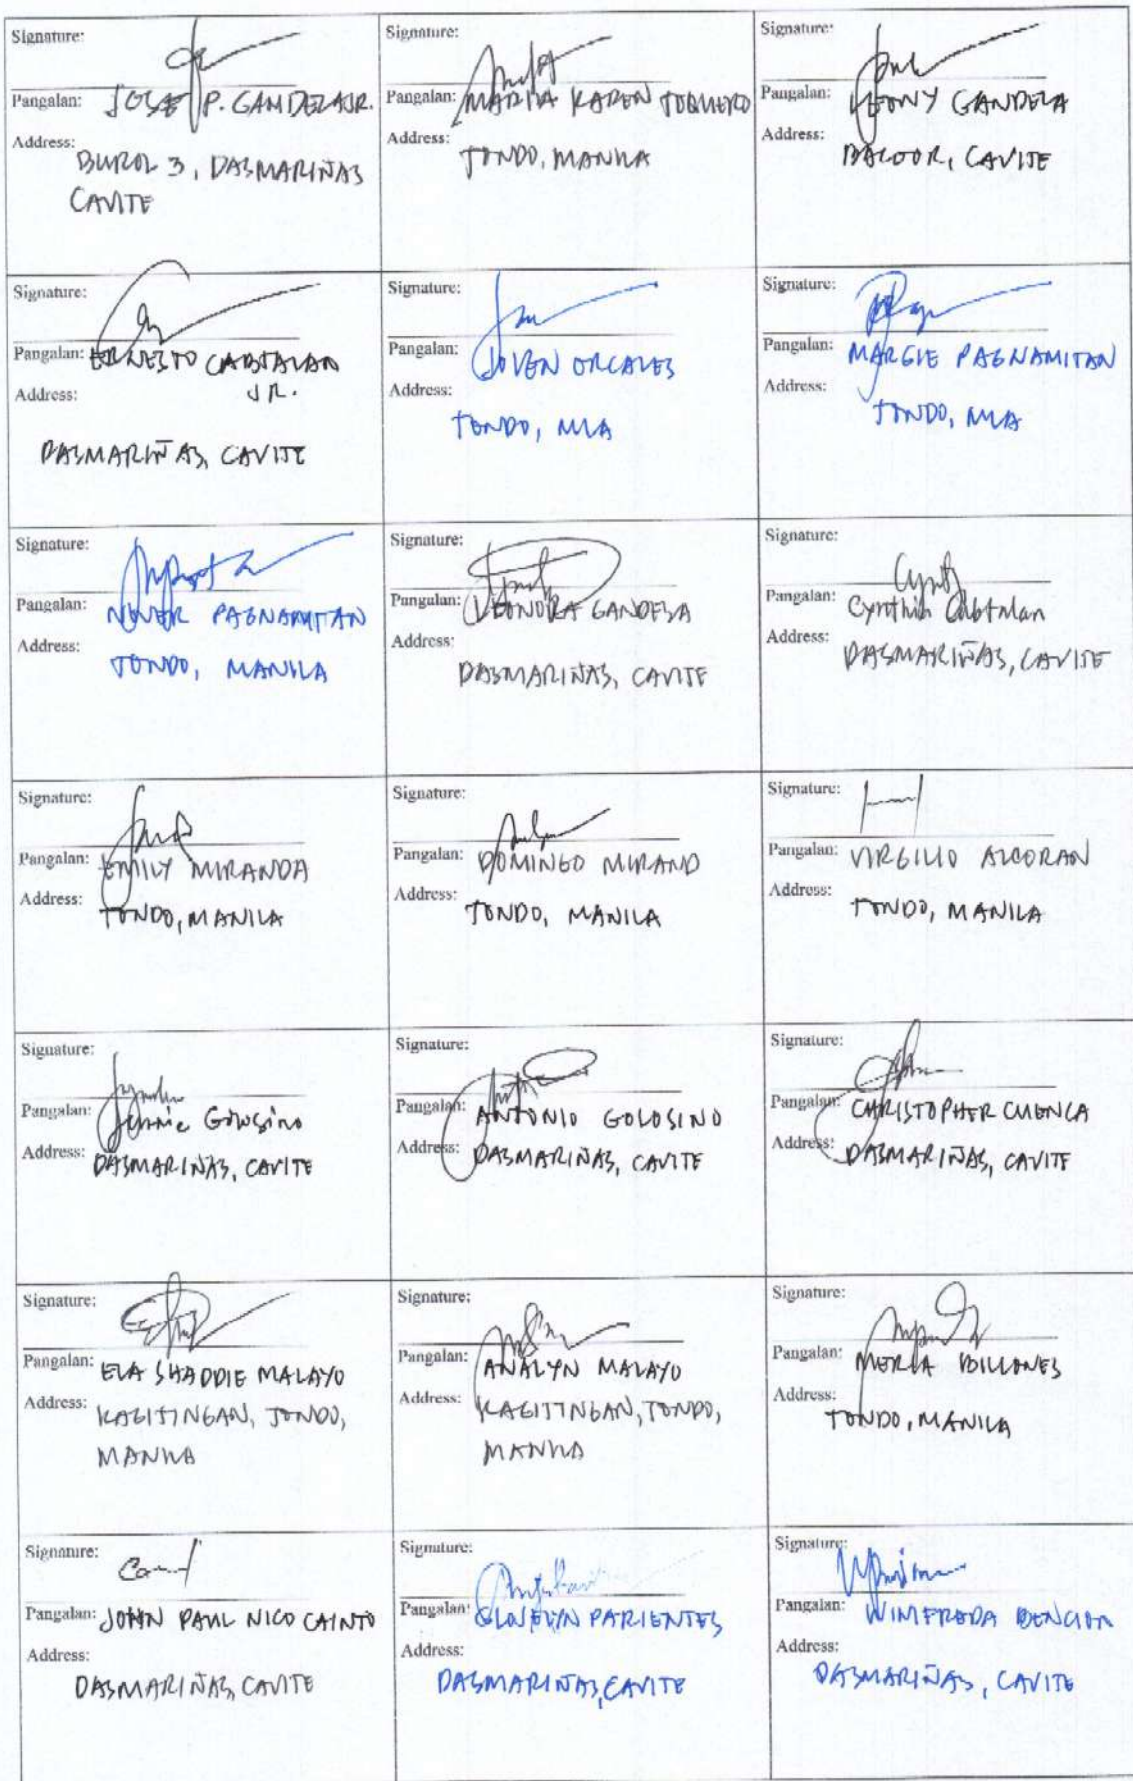 Signature:
Pangalan: JOSE P. GANDEZA JR.
Address:
BUROL 3, DASMARIÑAS
CAVITE
Signature:
Pangalan: MARIA KAREN TOQUERO
Address:
TONDO, MANILA
Signature:
Pangalan: LEONY GANDEZA
Address:
BACOOR, CAVITE
Signature:
Pangalan: ERNESTO CABTALAN
JR.
Address:
DASMARIÑAS, CAVITE
Signature:
Pangalan: JOVEN ORCALES
Address:
TONDO, MLA
Signature:
Pangalan: MARGIE PAGNAMITAN
Address:
TONDO, MLA
Signature:
Pangalan: PAGNAMITAN
Address:
TONDO, MANILA
Signature:
Pangalan: LEONORA GANDEZA
Address:
DASMARIÑAS, CAVITE
Signature:
Pangalan: Cynthia Cabtalan
Address:
DASMARIÑAS, CAVITE
Signature:
Pangalan: EMILY MIRANDA
Address:
TONDO, MANILA
Signature:
Pangalan: DOMINGO MIRAND
Address:
TONDO, MANILA
Signature:
Pangalan: VIRGILIO ALCORAN
Address:
TONDO, MANILA
Signature:
Pangalan: Jennie Golosino
Address:
DASMARIÑAS, CAVITE
Signature:
Pangalan: ANTONIO GOLOSINO
Address:
DASMARIÑAS, CAVITE
Signature:
Pangalan: CHRISTOPHER CUENCA
Address:
DASMARIÑAS, CAVITE
Signature:
Pangalan: ELA SHADDIE MALAYO
Address:
KAGITINGAN, TONDO,
MANILA
Signature:
Pangalan: ANALYN MALAYO
Address:
KAGITINGAN, TONDO,
MANILA
Signature:
Pangalan: MERLA BILLONES
Address:
TONDO, MANILA
Signature:
Pangalan: JOHN PAUL NICO CAINTO
Address:
DASMARIÑAS, CAVITE
Signature:
Pangalan: GLOVELYN PARIENTES
Address:
DASMARIÑAS, CAVITE
Signature:
Pangalan: WINIFREDA BENCION
Address:
DASMARIÑAS, CAVITE